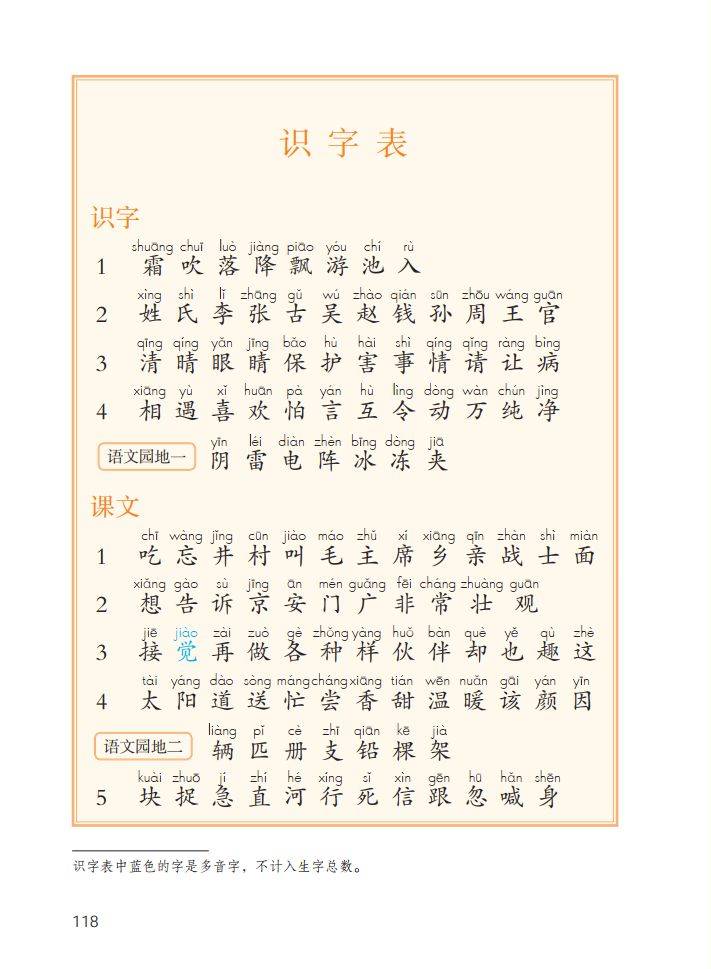 识字表
识字
shuāng chuī luò jiàng piāo yóu chí rù
1 霜 吹 落 降 飘 游 池 入
xìng shì lǐ zhāng gǔ wú zhào qián sūn zhōu wáng guān
2 姓 氏 李 张 古 吴 赵 钱 孙 周 王 官
qīng qíng yǎn jīng bǎo hù hài shì qíng qǐng ràng bìng
3 清 晴 眼 睛 保 护 害 事 情 请 让 病
xiāng yù xǐ huān pà yán hù lìng dòng wàn chún jìng
4 相 遇 喜 欢 怕 言 互 令 动 万 纯 净
yīn léi diàn zhèn bīng dòng jiā
语文园地一 阴 雷 电 阵 冰 冻 夹
课文
chī wàng jǐng cūn jiào máo zhǔ xí xiāng qīn zhàn shì miàn
1 吃 忘 井 村 叫 毛 主 席 乡 亲 战 士 面
xiǎng gào sù jīng ān mén guǎng fēi cháng zhuàng guān
2 想 告 诉 京 安 门 广 非 常 壮 观
jiē jiào zài zuò gè zhǒng yàng huǒ bàn què yě qù zhè
3 接 觉 再 做 各 种 样 伙 伴 却 也 趣 这
tài yáng dào sòng máng cháng xiāng tián wēn nuǎn gāi yán yīn
4 太 阳 道 送 忙 尝 香 甜 温 暖 该 颜 因
liàng pǐ cè zhī qiān kē jià
语文园地二 辆 匹 册 支 铅 棵 架
kuài zhuō jí zhí hé xíng sǐ xìn gēn hū hǎn shēn
5 块 捉 急 直 河 行 死 信 跟 忽 喊 身
识字表中蓝色的字是多音字，不计入生字总数。
118